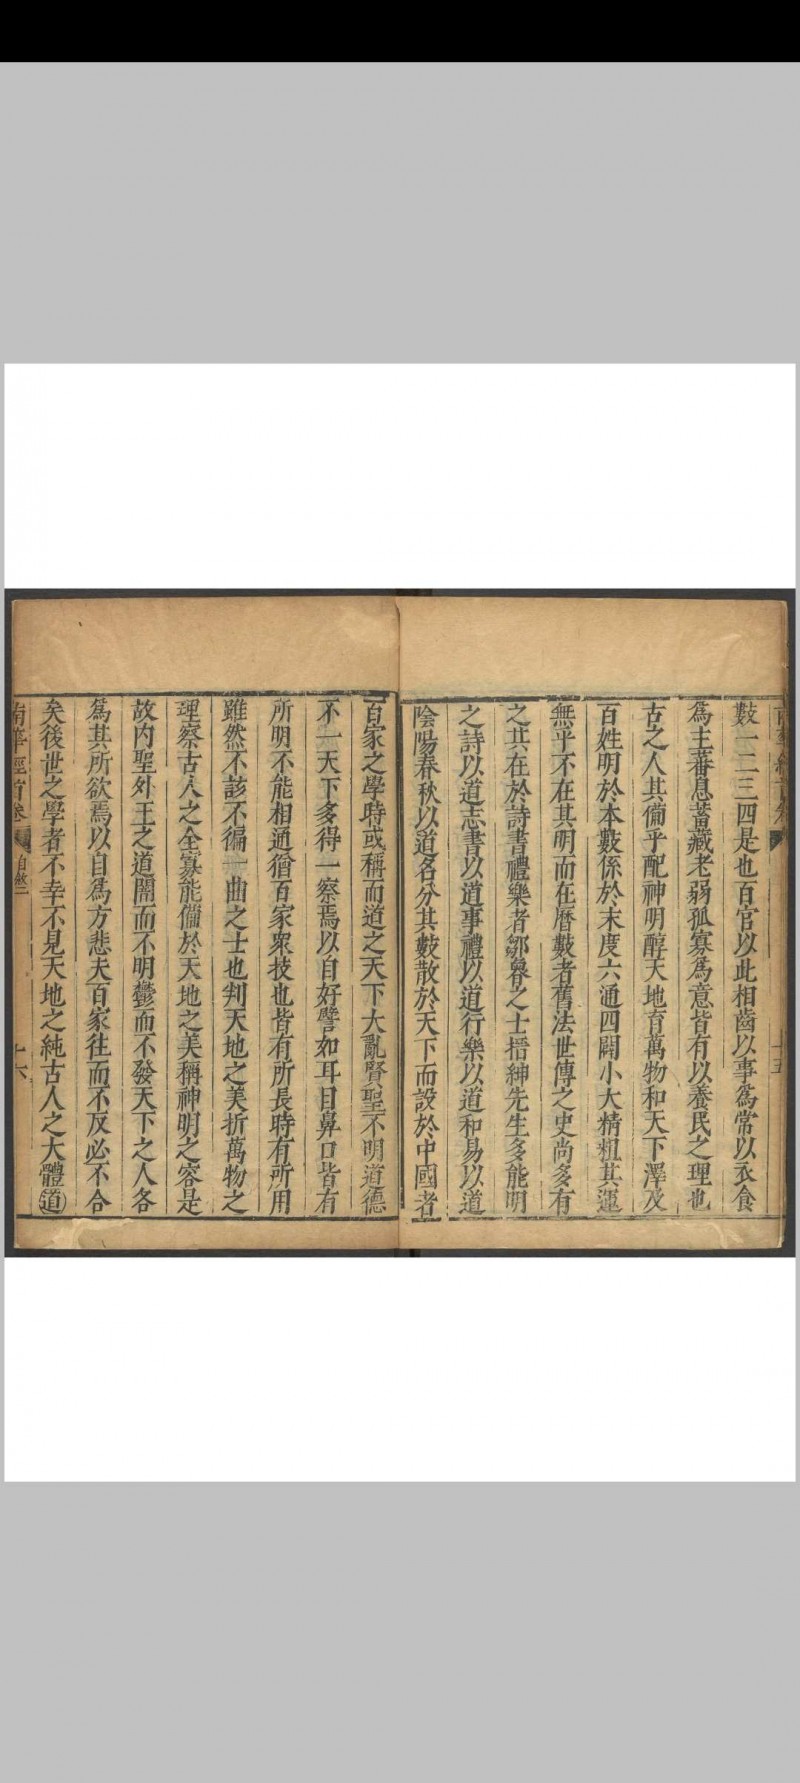 數一二三四是也百官以此相齒以事爲常以衣食
爲主蕃息蓄藏老弱孤寡爲意皆有以養民之理也
古之人其僃乎配神明醇天地育萬物和天下澤及
百姓明於本數係於末度六通四闢小大精粗其運
無乎不在其明而在曆數者舊法世傳之史尚多有
之其在於詩書禮樂者鄒魯之士搢紳先生多能明
之詩以道志書以道事禮以道行樂以道和易以道
陰陽春秋以道名分其數散於天下而設於中國者
百家之學時或稱而道之天下大亂賢聖不明道德
不一天下多得一察焉以自好譬如耳目鼻口皆有
所明不能相通猶百家衆技也皆有所長時有所用
雖然不該不徧一曲之士也判天地之美析萬物之
理察古人之全寡能僃於天地之美稱神明之容是
故内聖外王之道闇而不明鬱而不發天下之人各
爲其所欲焉以自爲方悲夫百家往而不反必不合
矣後世之學者不幸不見天地之純古人之大體道
南華經首卷 十六